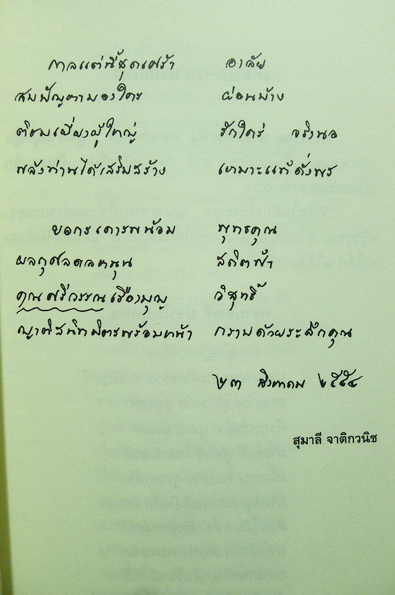 กาลแต่นี้สุดเศร้า อาลัย
สมบัญตามองใคร ผ่อนบ้าง
เตี่ยมเปี่ยงผู้ใหญ่ รักใคร่ จริงนอ
พลังท่านได้เสริมสร้าง เหมาะแท้ดั่งพร
ยอกรเคารพน้อม พุทธคุณ
ผลกุศลดลหนุน สถิตฟ้า
คุณศรีวรรณเรืองบุญ วิสุทธิ์
ญาติสนิทมิตรพร้อมหน้า กราบด้วยระลึกคุณ
๒๓ สิงหาคม ๒๕๕๔
สุมาลี จาติกวนิช